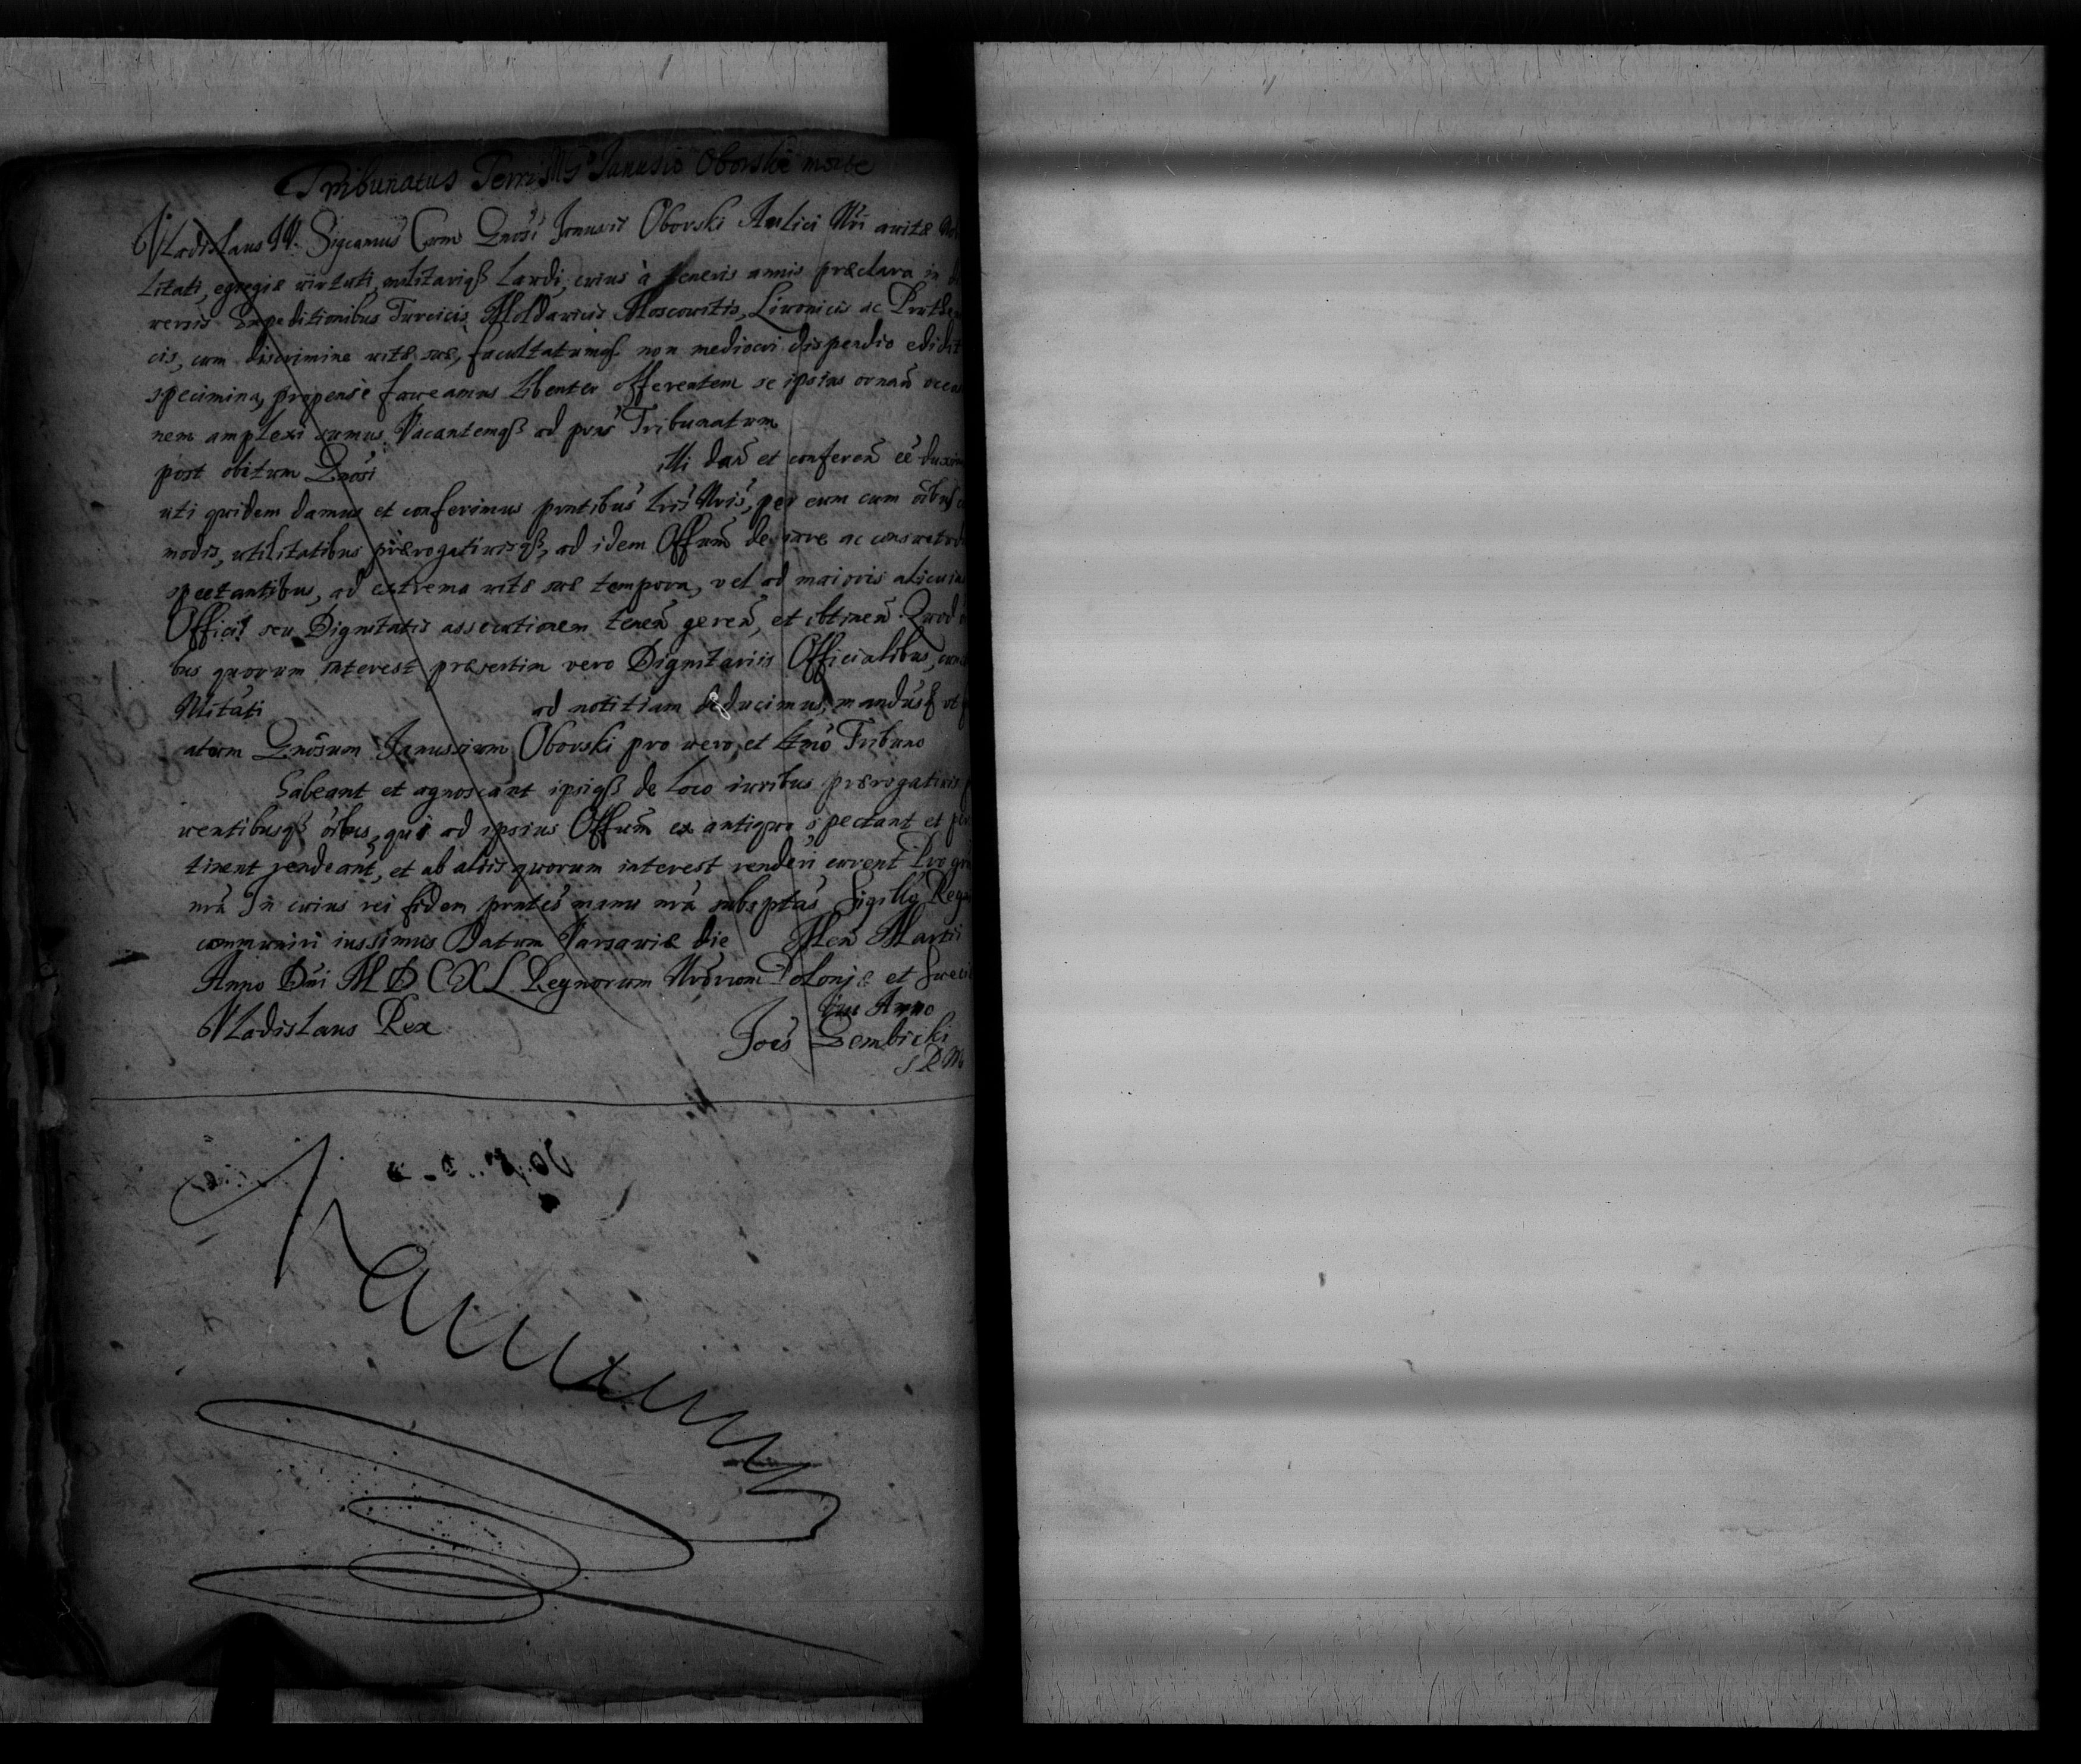 Tribunatus Terris Mgo Janusio Oborski morte
Vladislaus IV. Sigcamus Cum Gnosi Janusii Oborski Aulici Nri avitæ
litati, egregiæ virtuti, militariqß laudi, cuius à teneris annis præclara in
versis Expeditionibus Turcicis, Moldavicis Moscoviticis, Livonicis ac Pruthe
cis, cum discrimine vitæ suæ, facultatumqß non mediocri dispendio edidit
specimina, propensè faveamus libenter offerentem se ipsius ornandi occas
nem amplexi sumus. Vacantemqß ad præs Tribunatum
post obitum Gnosi illi dan̄ et conferen̄ eē duxim
uti quidem damus et conferimus pntibus lris Nris, per eum cum oībus
modis, utilitatibus prærogativisqß, ad idem Offum de iure ac consuetud
spectantibus, ad extrema vitæ suæ tempora, vel ad maioris alicuius
Officij seu Dignitatis assecutionem tenen̄ geren̄, et obtinen̄. Quod
bus quorum interest præsertim vero Dignitariis Officialibus,
Nlitati ad notitiam deducimus, mandusqß ut
atum Gnosum Janussium Oborski pro vero, et Lmo Tribuno
habeant et agnoscant ipsiqß de loco iuribus prærogativis
ventibusqß oībus, quæ ad ipsius Offum ex antiquo spectant et per
tinent rendeant, et ab aliis quorum interest renderi curent Pro grā
nrā In cuius rei fidem pntes manu nrā subsptas Sigillo Regn
communiri iussimus Datum Varsaviæ die Men Martii
Anno Dni MDCXL Regnorum Nrorum Poloniæ et Sueci
Anno
Vladislaus Rex
Joēs Gembicki
S R M